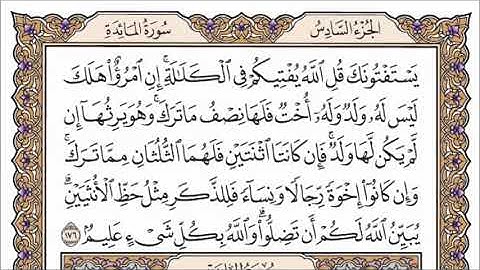 الجزء السادس
سورة المائدة
يَسْتَفْتُونَكَ قُلِ اللَّهُ يُفْتِيكُمْ فِي الْكَلَالَةِ ۚ إِنِ امْرُؤٌا هَلَكَ
لَيْسَ لَهُ وَلَدٌ وَلَهُ أُخْتٌ فَلَهَا نِصْفُ مَا تَرَكَ ۚ وَهُوَ يَرِثُهَا إِن
لَّمْ يَكُن لَّهَا وَلَدٌ ۚ فَإِن كَانَتَا اثْنَتَيْنِ فَلَهُمَا الثُّلُثَانِ مِمَّا تَرَكَ ۚ
وَإِن كَانُوا إِخْوَةً رِّجَالًا وَنِسَاءً فَلِلذَّكَرِ مِثْلُ حَظِّ الْأُنثَيَيْنِ ۗ
يُبَيِّنُ اللَّهُ لَكُمْ أَن تَضِلُّوا ۗ وَاللَّهُ بِكُلِّ شَيْءٍ عَلِيمٌ ١٧٦